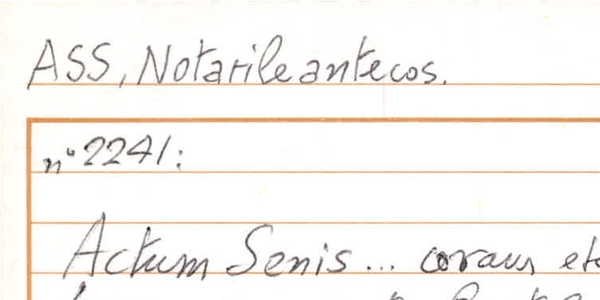 ASS, Notarile antecos.
n° 2241:
Actum Senis... coram etc